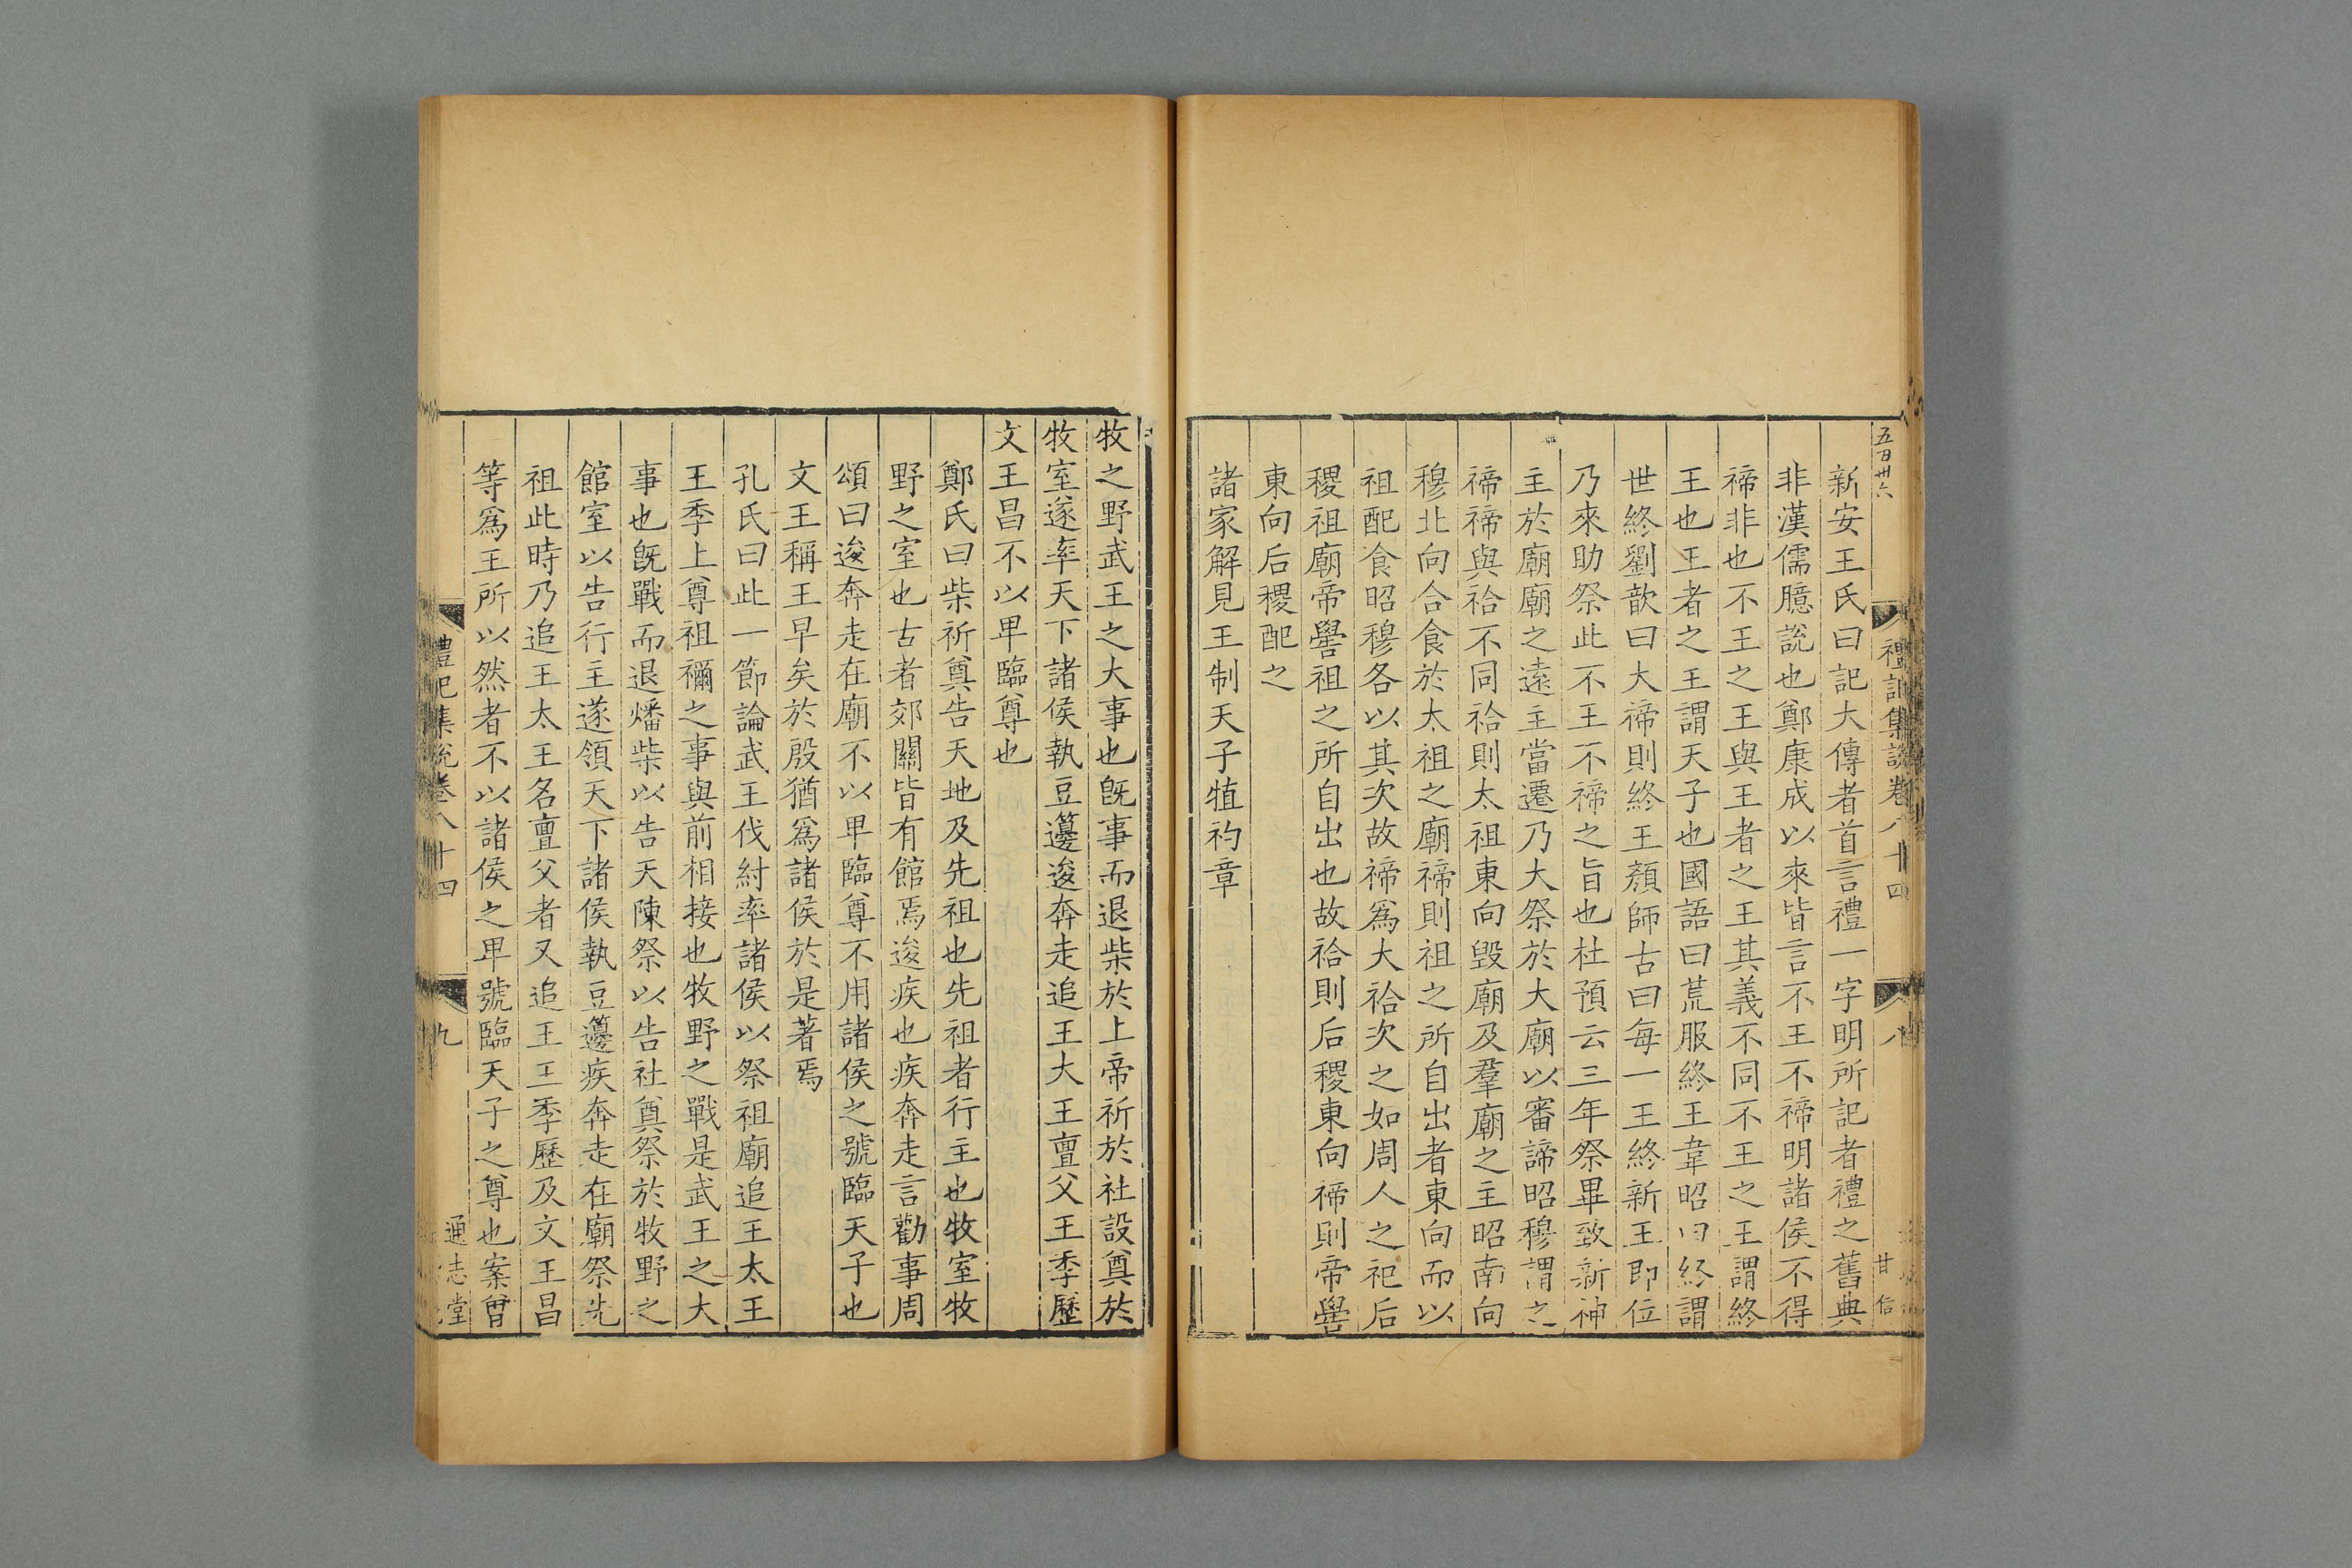 五百卅六
禮記集說卷八十四
八
甘信
新安王氏曰記大傳者首言禮一字明所記者禮之舊典
非漢儒臆說也鄭康成以來皆言不王不禘明諸侯不得
禘非也不王之王與王者之王其義不同不王之王謂終
王也王者之王謂天子也國語曰荒服終王韋昭曰終謂
世終劉歆曰大禘則終王顏師古曰每一王終新王即位
乃來助祭此不王不禘之旨也杜預云三年祭畢致新神
主於廟廟之遠主當遷乃大祭於大廟以審諦昭穆謂之
禘禘與祫不同祫則太祖東向毀廟及羣廟之主昭南向
穆北向合食於太祖之廟禘則祖之所自出者東向而以
祖配食昭穆各以其次故禘爲大祫次之如周人之祀后
稷祖廟帝嚳祖之所自出也故祫則后稷東向禘則帝嚳
東向后稷配之
諸家解見王制天子犆礿章
牧之野武王之大事也旣事而退柴於上帝祈於社設奠於
牧室遂率天下諸侯執豆籩逡奔走追王大王亶父王季歷
文王昌不以卑臨尊也
鄭氏曰柴祈奠告天地及先祖也先祖者行主也牧室牧
野之室也古者郊關皆有館焉逡疾也疾奔走言勸事周
頌曰逡奔走在廟不以卑臨尊不用諸侯之號臨天子也
文王稱王早矣於殷猶爲諸侯於是著焉
孔氏曰此一節論武王伐紂率諸侯以祭祖廟追王太王
王季上尊祖禰之事與前相接也牧野之戰是武王之大
事也旣戰而退燔柴以告天陳祭以告社奠祭於牧野之
館室以告行主遂領天下諸侯執豆籩疾奔走在廟祭先
祖此時乃追王太王名亶父者又追王王季歷及文王昌
等爲王所以然者不以諸侯之卑號臨天子之尊也案曾
禮記集說卷八十四
九
通志堂